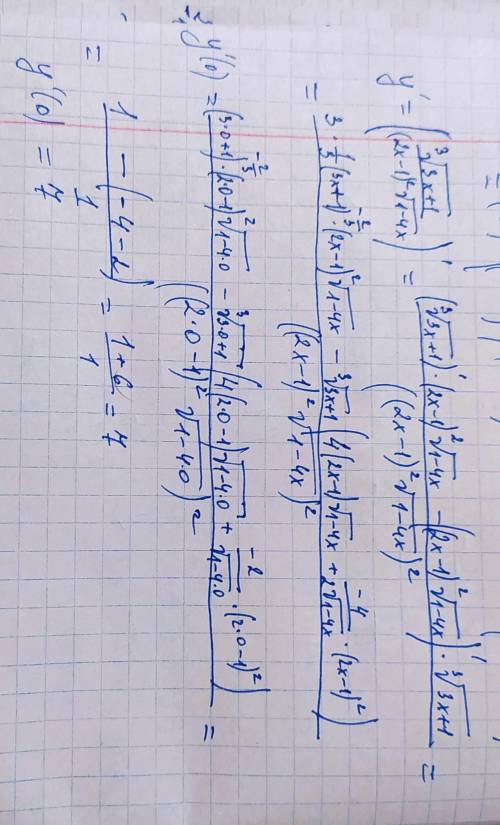 y' = (∛(3x+1) / ((2x-1)²√(1-4x)))' = ((∛(3x+1))' · (2x-1)²√(1-4x) - ((2x-1)²√(1-4x))' · ∛(3x+1)) / ((2x-1)²√(1-4x))² =
= (3 · 1/3 (3x+1)^(-2/3) · (2x-1)²√(1-4x) - ∛(3x+1) (4(2x-1)√(1-4x) + -4/(2√(1-4x)) · (2x-1)²)) / ((2x-1)²√(1-4x))²
y'(0) = ((3·0+1)^(-2/3) · (2·0-1)²√(1-4·0) - ∛(3·0+1) (4(2·0-1)√(1-4·0) + -2/√(1-4·0) · (2·0-1)²)) / ((2·0-1)²√(1-4·0))² =
= (1 - (-4-2)) / 1 = (1+6)/1 = 7
y'(0) = 7